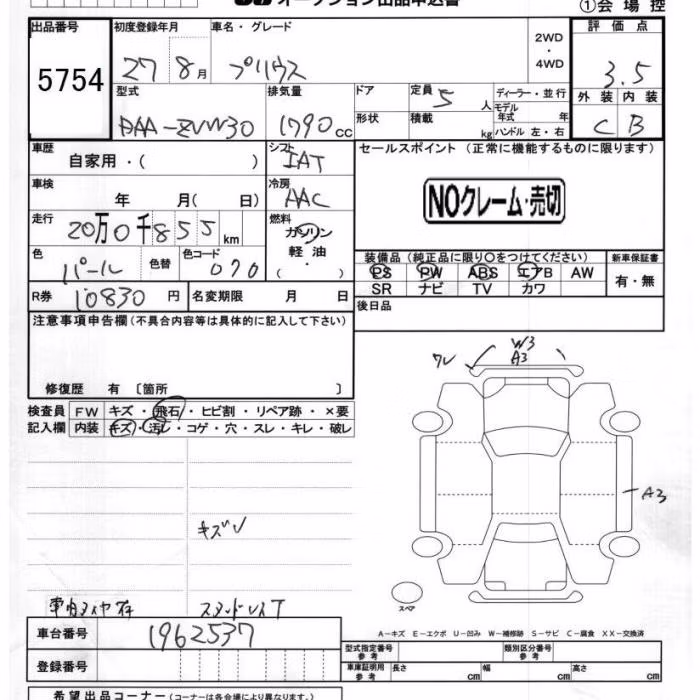 オークション出品申込書
①会場控
出品番号 初度登録年月 車名・グレード 2WD・4WD 評価点
5754 27 8月 プリウス 3.5
型式 排気量 ドア 定員 5人 ディーラー・並行 外装 内装
モデル年式 年
DAA-ZVW30 1790cc 形状 積載 kg ハンドル 左・右 C B
車歴 自家用・( ) シフト IAT セールスポイント (正常に機能するものに限ります)
車検 年 月( 日) 冷房 AAC
NOクレーム・売切
走行 20万0千855km 燃料 ガソリン 軽油 ( ・ )
色 パール 色替 色コード 070
装備品 (純正品に限り○をつけてください) 新車保証書
PS PW ABS エアB AW 有・無
SR ナビ TV カワ
R券 10830円 名変期限 月 日 後日品
注意事項申告欄 (不具合内容等は具体的に記入して下さい)
修復歴 有 〔箇所 〕
検査員 FW キズ・飛石・ヒビ割・リペア跡・×要
記入欄 内装 キズ・汚レ・コゲ・穴・スレ・キレ・破レ
W3
ワレ A3
A3
キズ
スペア
A-キズ E-エクボ U-凹み W-補修跡 S-サビ C-腐食 XX-交換済
車台番号 1962537
登録番号
型式指定番号参考 類別区分番号参考
車庫証明用参考 長さ cm 幅 cm 高さ cm
希望出品コーナー (コーナーは各会場により異なります。)